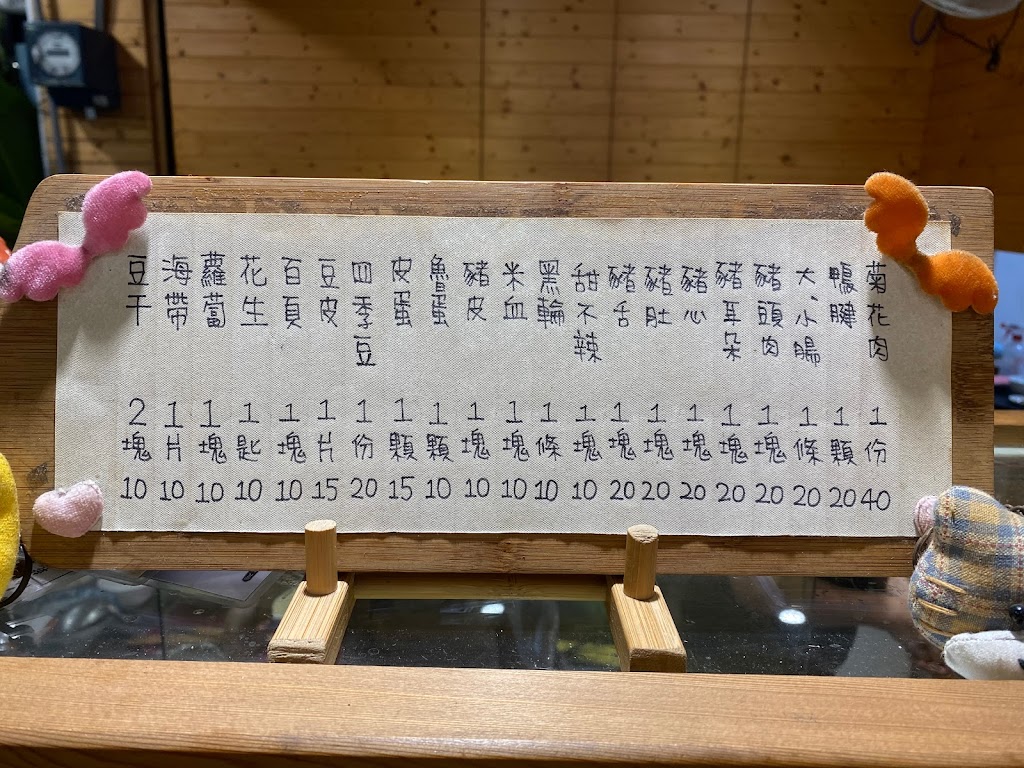 豆干 2塊 10
海帶 1片 10
蘿蔔 1塊 10
花生 1匙 10
百頁 1塊 10
豆皮 1片 15
四季豆 1份 20
皮蛋 1顆 15
魯蛋 1顆 10
豬皮 1塊 10
米血 1塊 10
黑輪 1條 10
甜不辣 1塊 10
豬舌 1塊 20
豬肚 1塊 20
豬心 1塊 20
豬耳朵 1塊 20
豬頭肉 1塊 20
大、小腸 1條 20
鴨腱 1顆 20
菊花肉 1份 40